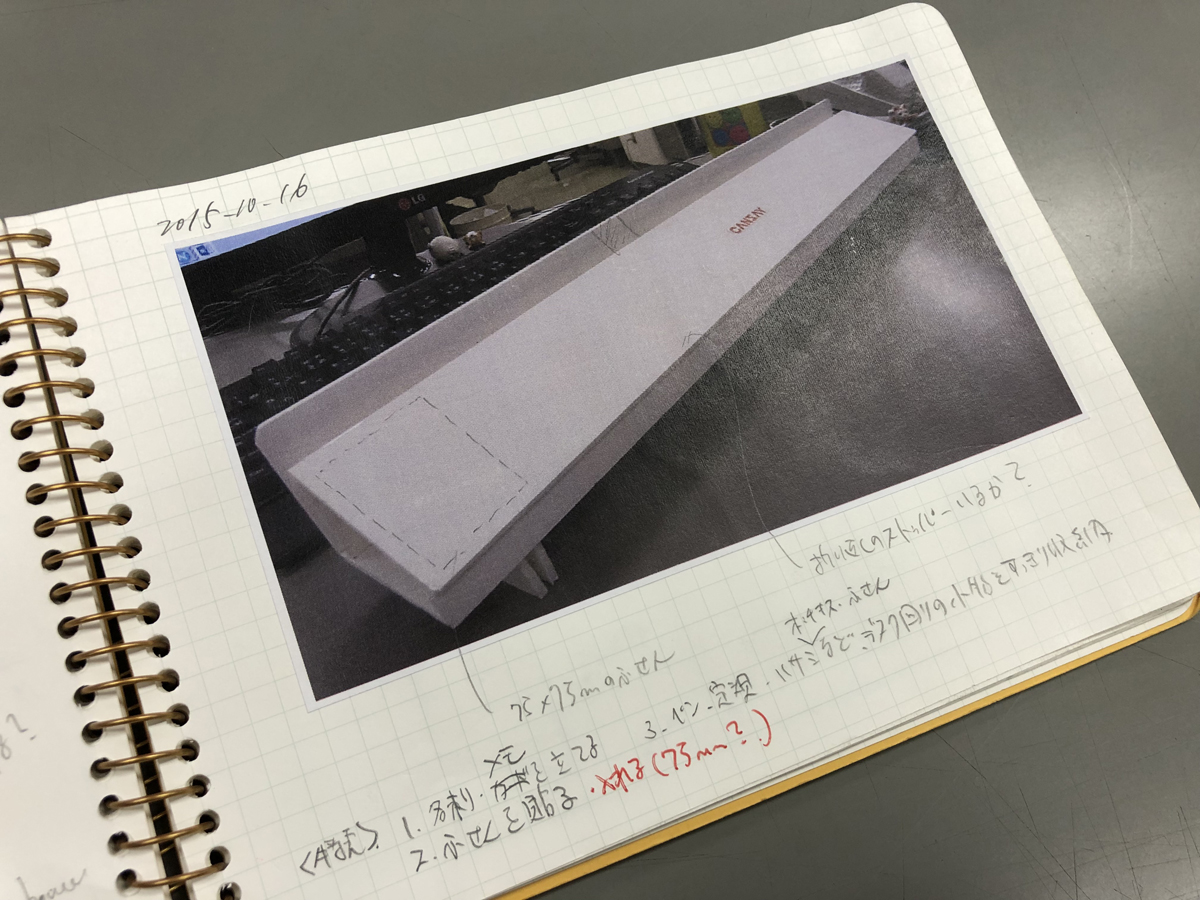 2015-10-16
LG
CANSAY
折り返しのストッパーいるかて?
75×75mmのふせん
ホッチキス・ふせん
<特長> 1. 名刺・メモを立てる 3. ペン・定規・ハサミなどデスク回りの小物をすっきり収納
2. ふせんを貼る・入れる(75mm?)